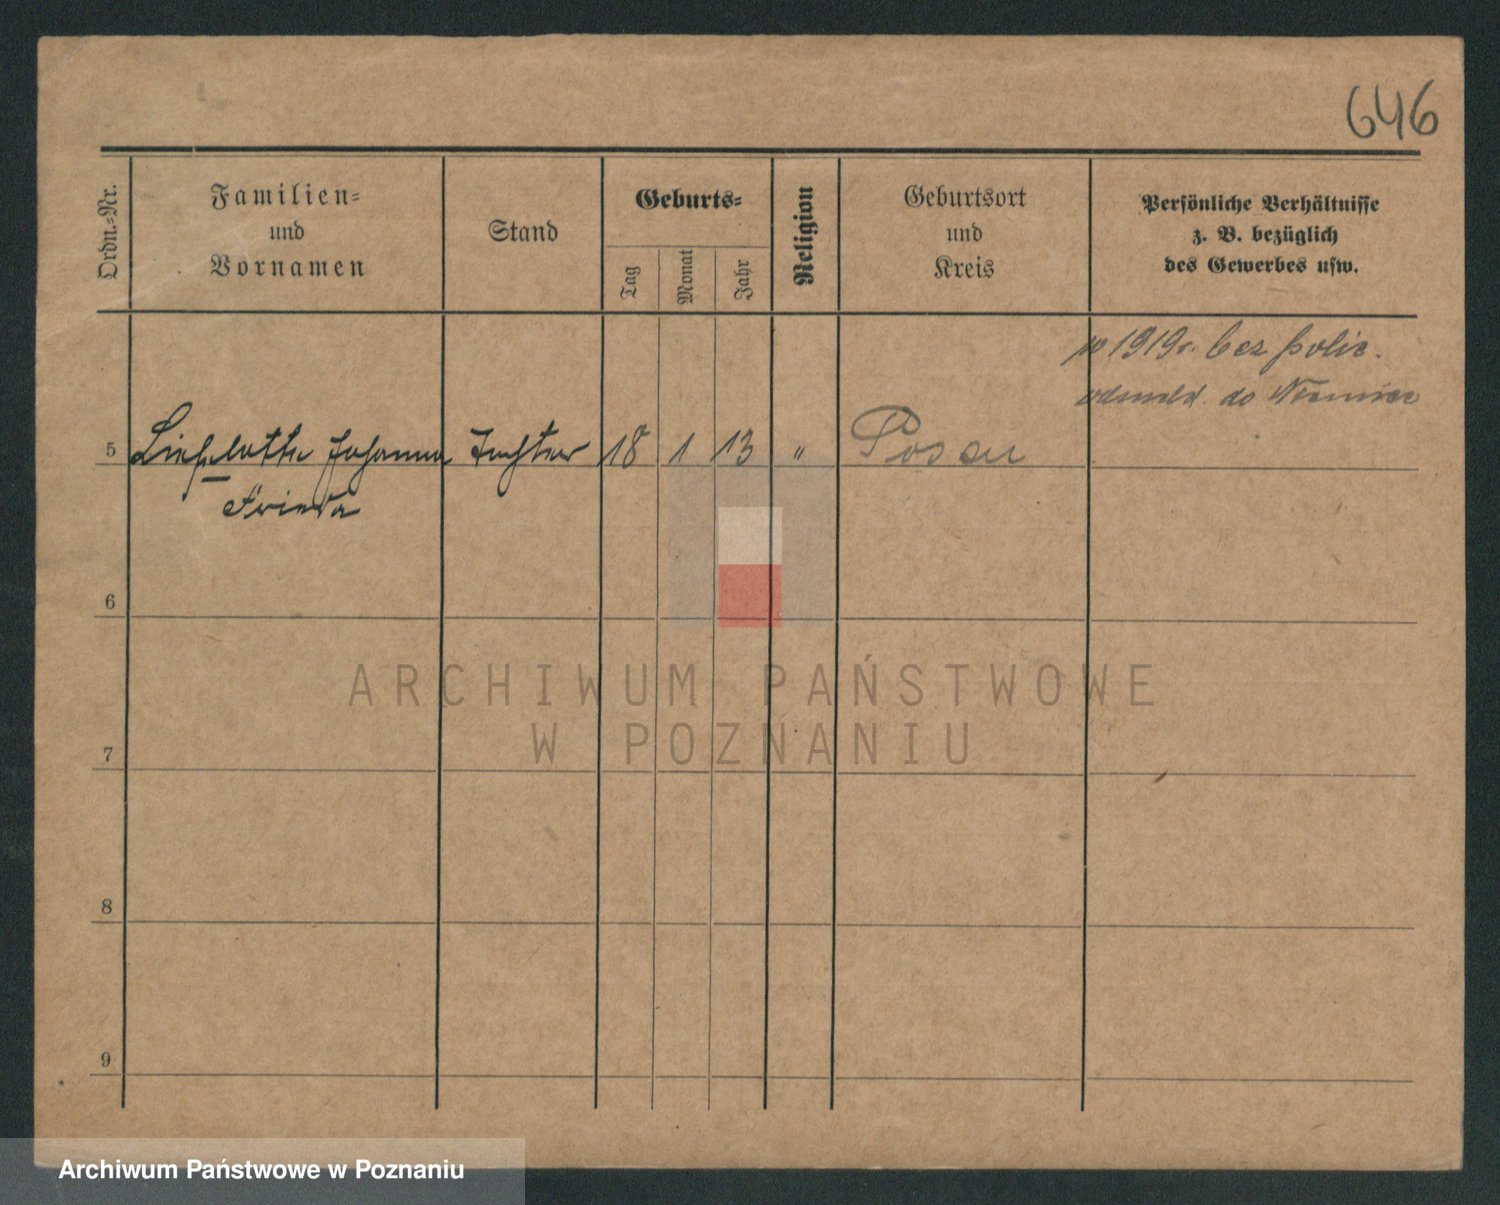 646
Ordn.-Nr.
Familien-
und
Vornamen
Stand
Geburts-
Tag
Monat
Jahr
Religion
Geburtsort
und
Kreis
Persönliche Verhältnisse
z. B. bezüglich
des Gewerbes usw.
w 1919r. bez polic.
odmeld. do Niemiec
5 Lieselotte Johanna Tochter 18 1 13 " Posen
Frieda
6
7
8
9
ARCHIWUM PAŃSTWOWE
W POZNANIU
Archiwum Państwowe w Poznaniu